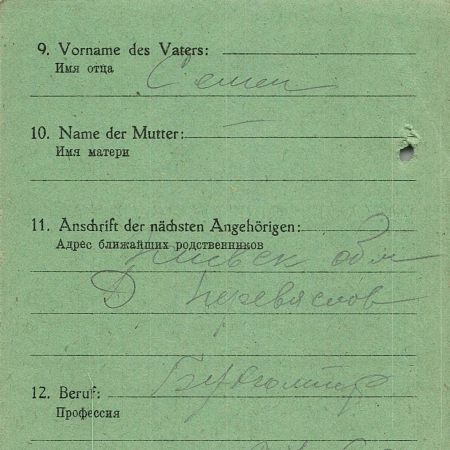 9. Vorname des Vaters:
Имя отца
Семен
10. Name der Mutter: —
Имя матери
11. Anschrift der nächsten Angehörigen:
Адрес ближайших родственников
обл
Д Перевяслов
12. Beruf:
Профессия